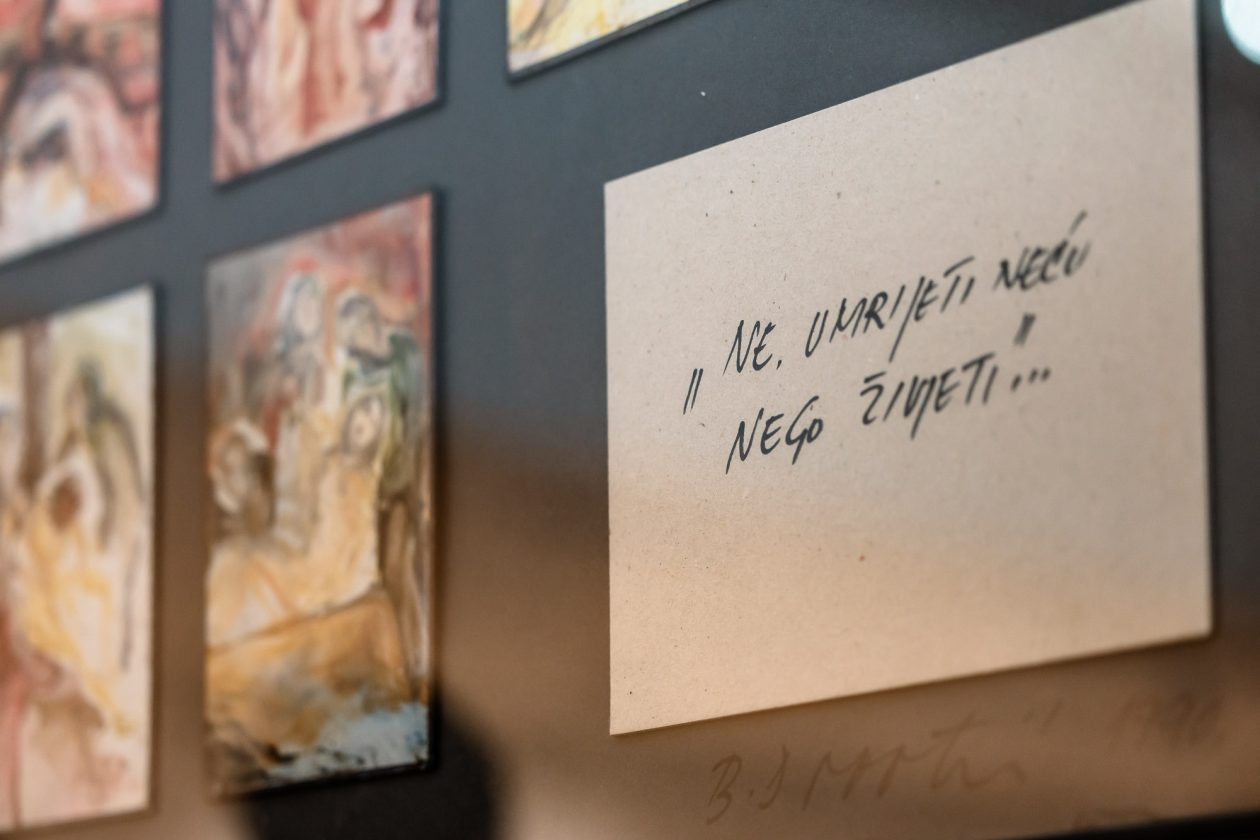 „ NE, UMRIJETI NEĆU
NEGO ŽIVJETI..."